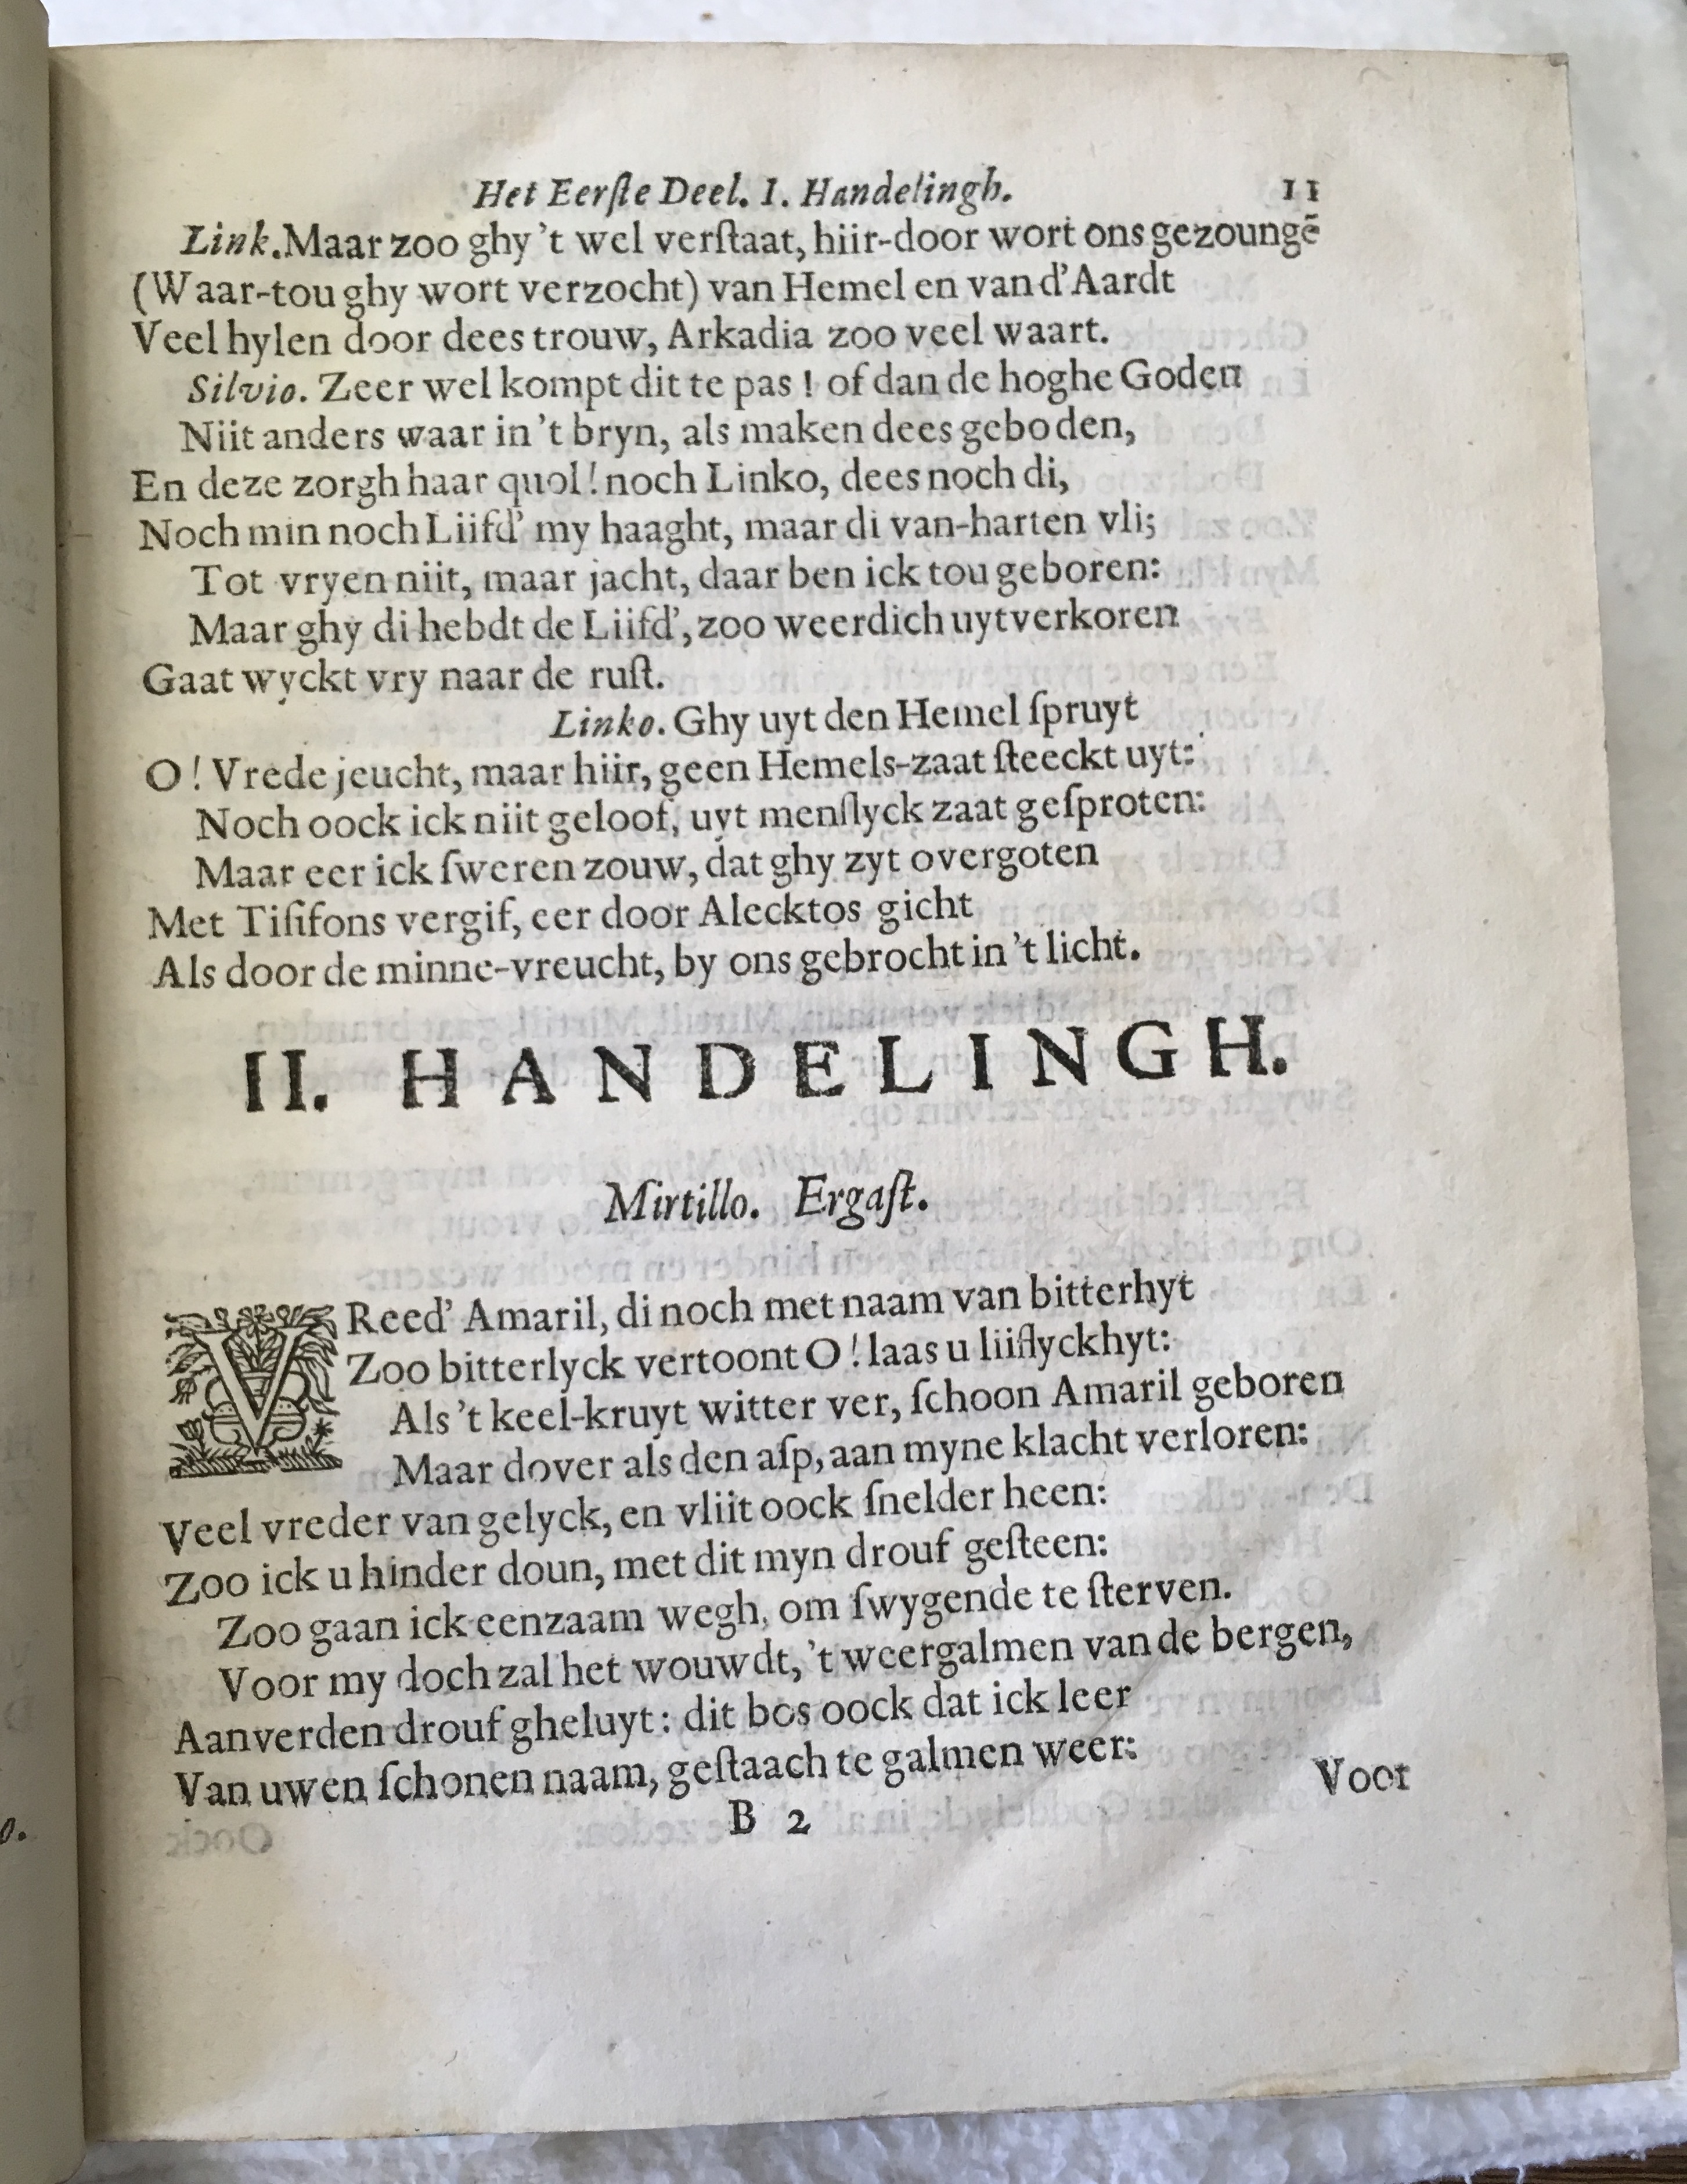 Het Eerſte Deel. I. Handelingh. 11
Link. Maar zoo ghy 't wel verſtaat, hiir-door wort ons gezoungē
(Waar-tou ghy wort verzocht) van Hemel en van d'Aardt
Veel hylen door dees trouw, Arkadia zoo veel waart.
Silvio. Zeer wel kompt dit te pas ! of dan de hoghe Goden
Niit anders waar in 't bryn, als maken dees geboden,
En deze zorgh haar quol! noch Linko, dees noch di,
Noch min noch Liifd' my haaght, maar di van-harten vli;
Tot vryen niit, maar jacht, daar ben ick tou geboren:
Maar ghy di hebdt de Liifd', zoo weerdich uytverkoren
Gaat wyckt vry naar de ruſt.
Linko. Ghy uyt den Hemel ſpruyt
O! Vrede jeucht, maar hiir, geen Hemels-zaat ſteeckt uyt:
Noch oock ick niit geloof, uyt menſlyck zaat geſproten:
Maar eer ick ſweren zouw, dat ghy zyt overgoten
Met Tiſifons vergif, eer door Alecktos gicht
Als door de minne-vreucht, by ons gebrocht in 't licht.
II. HANDELINGH.
Mirtillo. Ergaſt.
VReed' Amaril, di noch met naam van bitterhyt
Zoo bitterlyck vertoont O! laas u liiflyckhyt:
Als 't keel-kruyt witter ver, ſchoon Amaril geboren
Maar dover als den aſp, aan myne klacht verloren:
Veel vreder van gelyck, en vliit oock ſnelder heen:
Zoo ick u hinder doun, met dit myn drouf geſteen:
Zoo gaan ick eenzaam wegh, om ſwygende te ſterven.
Voor my doch zal het wouwdt, 't weergalmen van de bergen,
Aanverden drouf gheluyt: dit bos oock dat ick leer
Van uwen ſchonen naam, geſtaach te galmen weer:
B 2 Voor